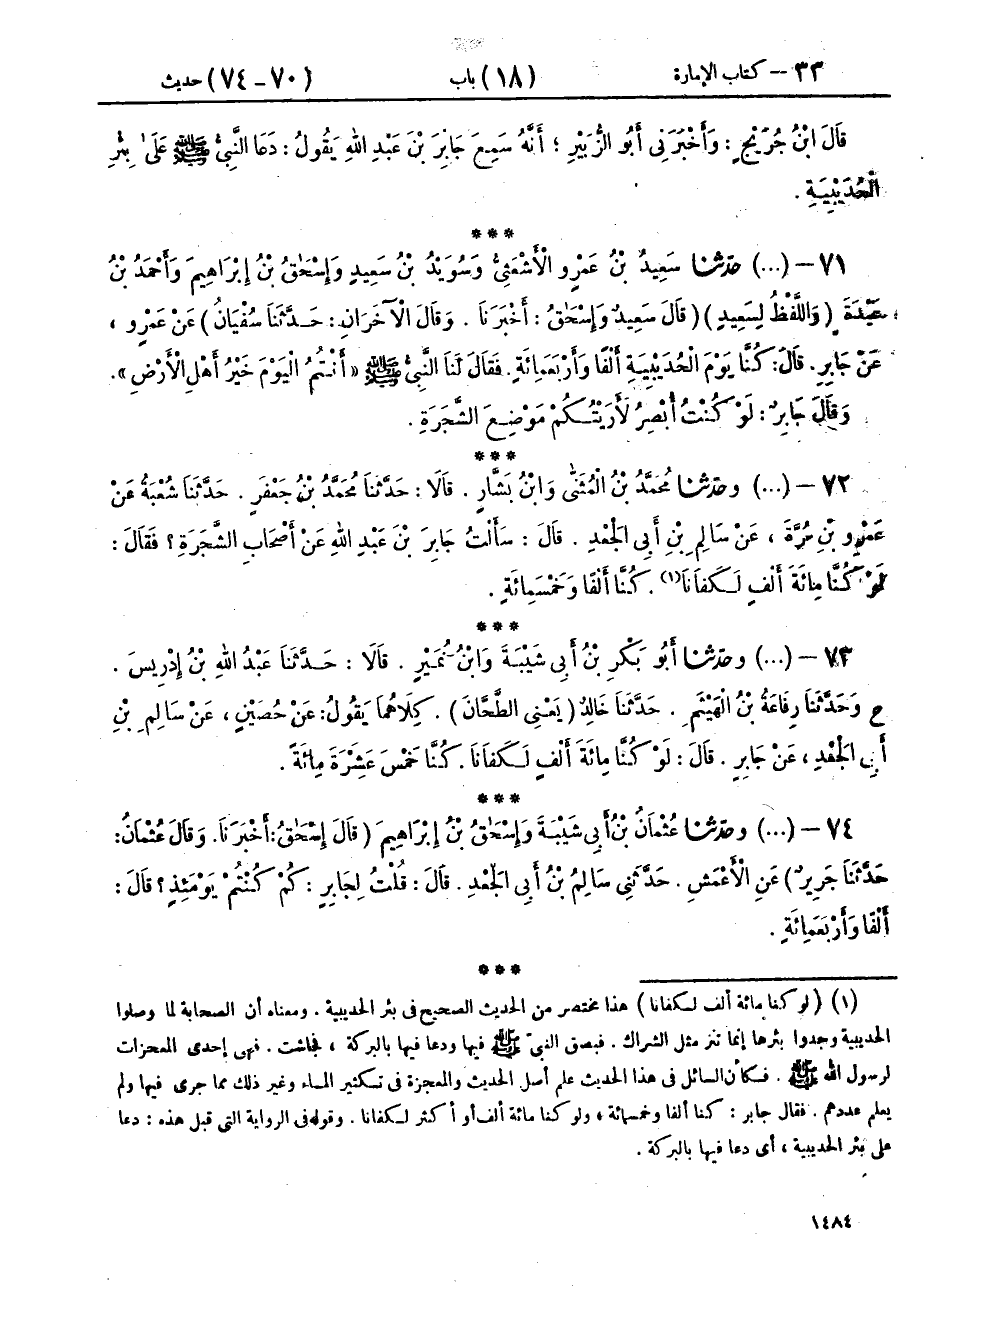 ٣٣ – كتاب الإمارة (١٨) باب (٧٠ – ٧٤) حديث
قَالَ ابْنُ جُرَيْجٍ : وَأَخْبَرَنِى أَبُو الزُّبَيْرِ ؛ أَنَّهُ سَمِعَ جَابِرَ بْنَ عَبْدِ اللهِ يَقُولُ : دَعَا النَّبِىُّ ﷺ عَلَىٰ بِئْرِ
الْحُدَيْبِيَةِ .
***
٧١ – (...) حدّثنا سَعِيدُ بْنُ عَمْرٍو الْأَشْعَثِىُّ وَسُوَيْدُ بْنُ سَعِيدٍ وَإِسْحَٰقُ بْنُ إِبْرَاهِيمَ وَأَحْمَدُ بْنُ
عَبْدَةَ (وَاللَّفْظُ لِسَعِيدٍ) (قَالَ سَعِيدٌ وَإِسْحَٰقُ : أَخْبَرَنَا . وَقَالَ الْآخَرَانِ : حَدَّثَنَا سُفْيَانُ) عَنْ عَمْرٍو ،
عَنْ جَابِرٍ. قَالَ : كُنَّا يَوْمَ الْحُدَيْبِيَةِ أَلْفًا وَأَرْبَعَمِائَةٍ. فَقَالَ لَنَا النَّبِىُّ ﷺ « أَنْتُمُ الْيَوْمَ خَيْرُ أَهْلِ الْأَرْضِ».
وَقَالَ جَابِرٌ : لَوْ كُنْتُ أُبْصِرُ لَأَرَيْتُكُمْ مَوْضِعَ الشَّجَرَةِ .
***
٧٢ – (...) وحدّثنا مُحَمَّدُ بْنُ الْمُثَنَّىٰ وَابْنُ بَشَّارٍ . قَالَا : حَدَّثَنَا مُحَمَّدُ بْنُ جَعْفَرٍ . حَدَّثَنَا شُعْبَةُ عَنْ
عَمْرِو بْنِ مُرَّةَ ، عَنْ سَالِمِ بْنِ أَبِى الْجَعْدِ . قَالَ : سَأَلْتُ جَابِرَ بْنَ عَبْدِ اللهِ عَنْ أَصْحَابِ الشَّجَرَةِ ؟ فَقَالَ :
لَوْ كُنَّا مِائَةَ أَلْفٍ لَكَفَانَا(١) . كُنَّا أَلْفًا وَخَمْسَمِائَةٍ .
***
٧٣ – (...) وحدّثنا أَبُو بَكْرِ بْنُ أَبِى شَيْبَةَ وَابْنُ نُمَيْرٍ . قَالَا : حَدَّثَنَا عَبْدُ اللهِ بْنُ إِدْرِيسَ .
ح وَحَدَّثَنَا رِفَاعَةُ بْنُ الْهَيْثَمِ . حَدَّثَنَا خَالِدٌ (يَعْنِى الطَّحَّانَ) . كِلَاهُمَا يَقُولُ : عَنْ حُصَيْنٍ ، عَنْ سَالِمِ بْنِ
أَبِى الْجَعْدِ ، عَنْ جَابِرٍ . قَالَ : لَوْ كُنَّا مِائَةَ أَلْفٍ لَكَفَانَا . كُنَّا خَمْسَ عَشْرَةَ مِائَةً .
***
٧٤ – (...) وحدّثنا عُثْمَانُ بْنُ أَبِى شَيْبَةَ وَإِسْحَٰقُ بْنُ إِبْرَاهِيمَ (قَالَ إِسْحَٰقُ : أَخْبَرَنَا. وَقَالَ عُثْمَانُ :
حَدَّثَنَا جَرِيرٌ) عَنِ الْأَعْمَشِ . حَدَّثَنِى سَالِمُ بْنُ أَبِى الْجَعْدِ . قَالَ : قُلْتُ لِجَابِرٍ : كَمْ كُنْتُمْ يَوْمَئِذٍ ؟ قَالَ :
أَلْفًا وَأَرْبَعَمِائَةٍ .
***
(١) (لو كنا مائة ألف لكفانا) هذا مختصر من الحديث الصحيح فى بئر الحديبية . ومعناه أن الصحابة لما وصلوا
الحديبية وجدوا بئرها إنما تنز مثل الشراك . فبصق النبىّ ﷺ فيها ودعا فيها بالبركة ، فجاشت . فهى إحدى المعجزات
لرسول الله ﷺ . فكأن السائل فى هذا الحديث علم أصل الحديث والمعجزة فى تكثير الماء وغير ذلك مما جرى فيها ولم
يعلم عددهم . فقال جابر : كنا ألفا وخمسمائة ، ولو كنا مائة ألف أو أكثر لكفانا . وقوله فى الرواية التى قبل هذه : دعا
على بئر الحديبية ، أى دعا فيها بالبركة .
١٤٨٤